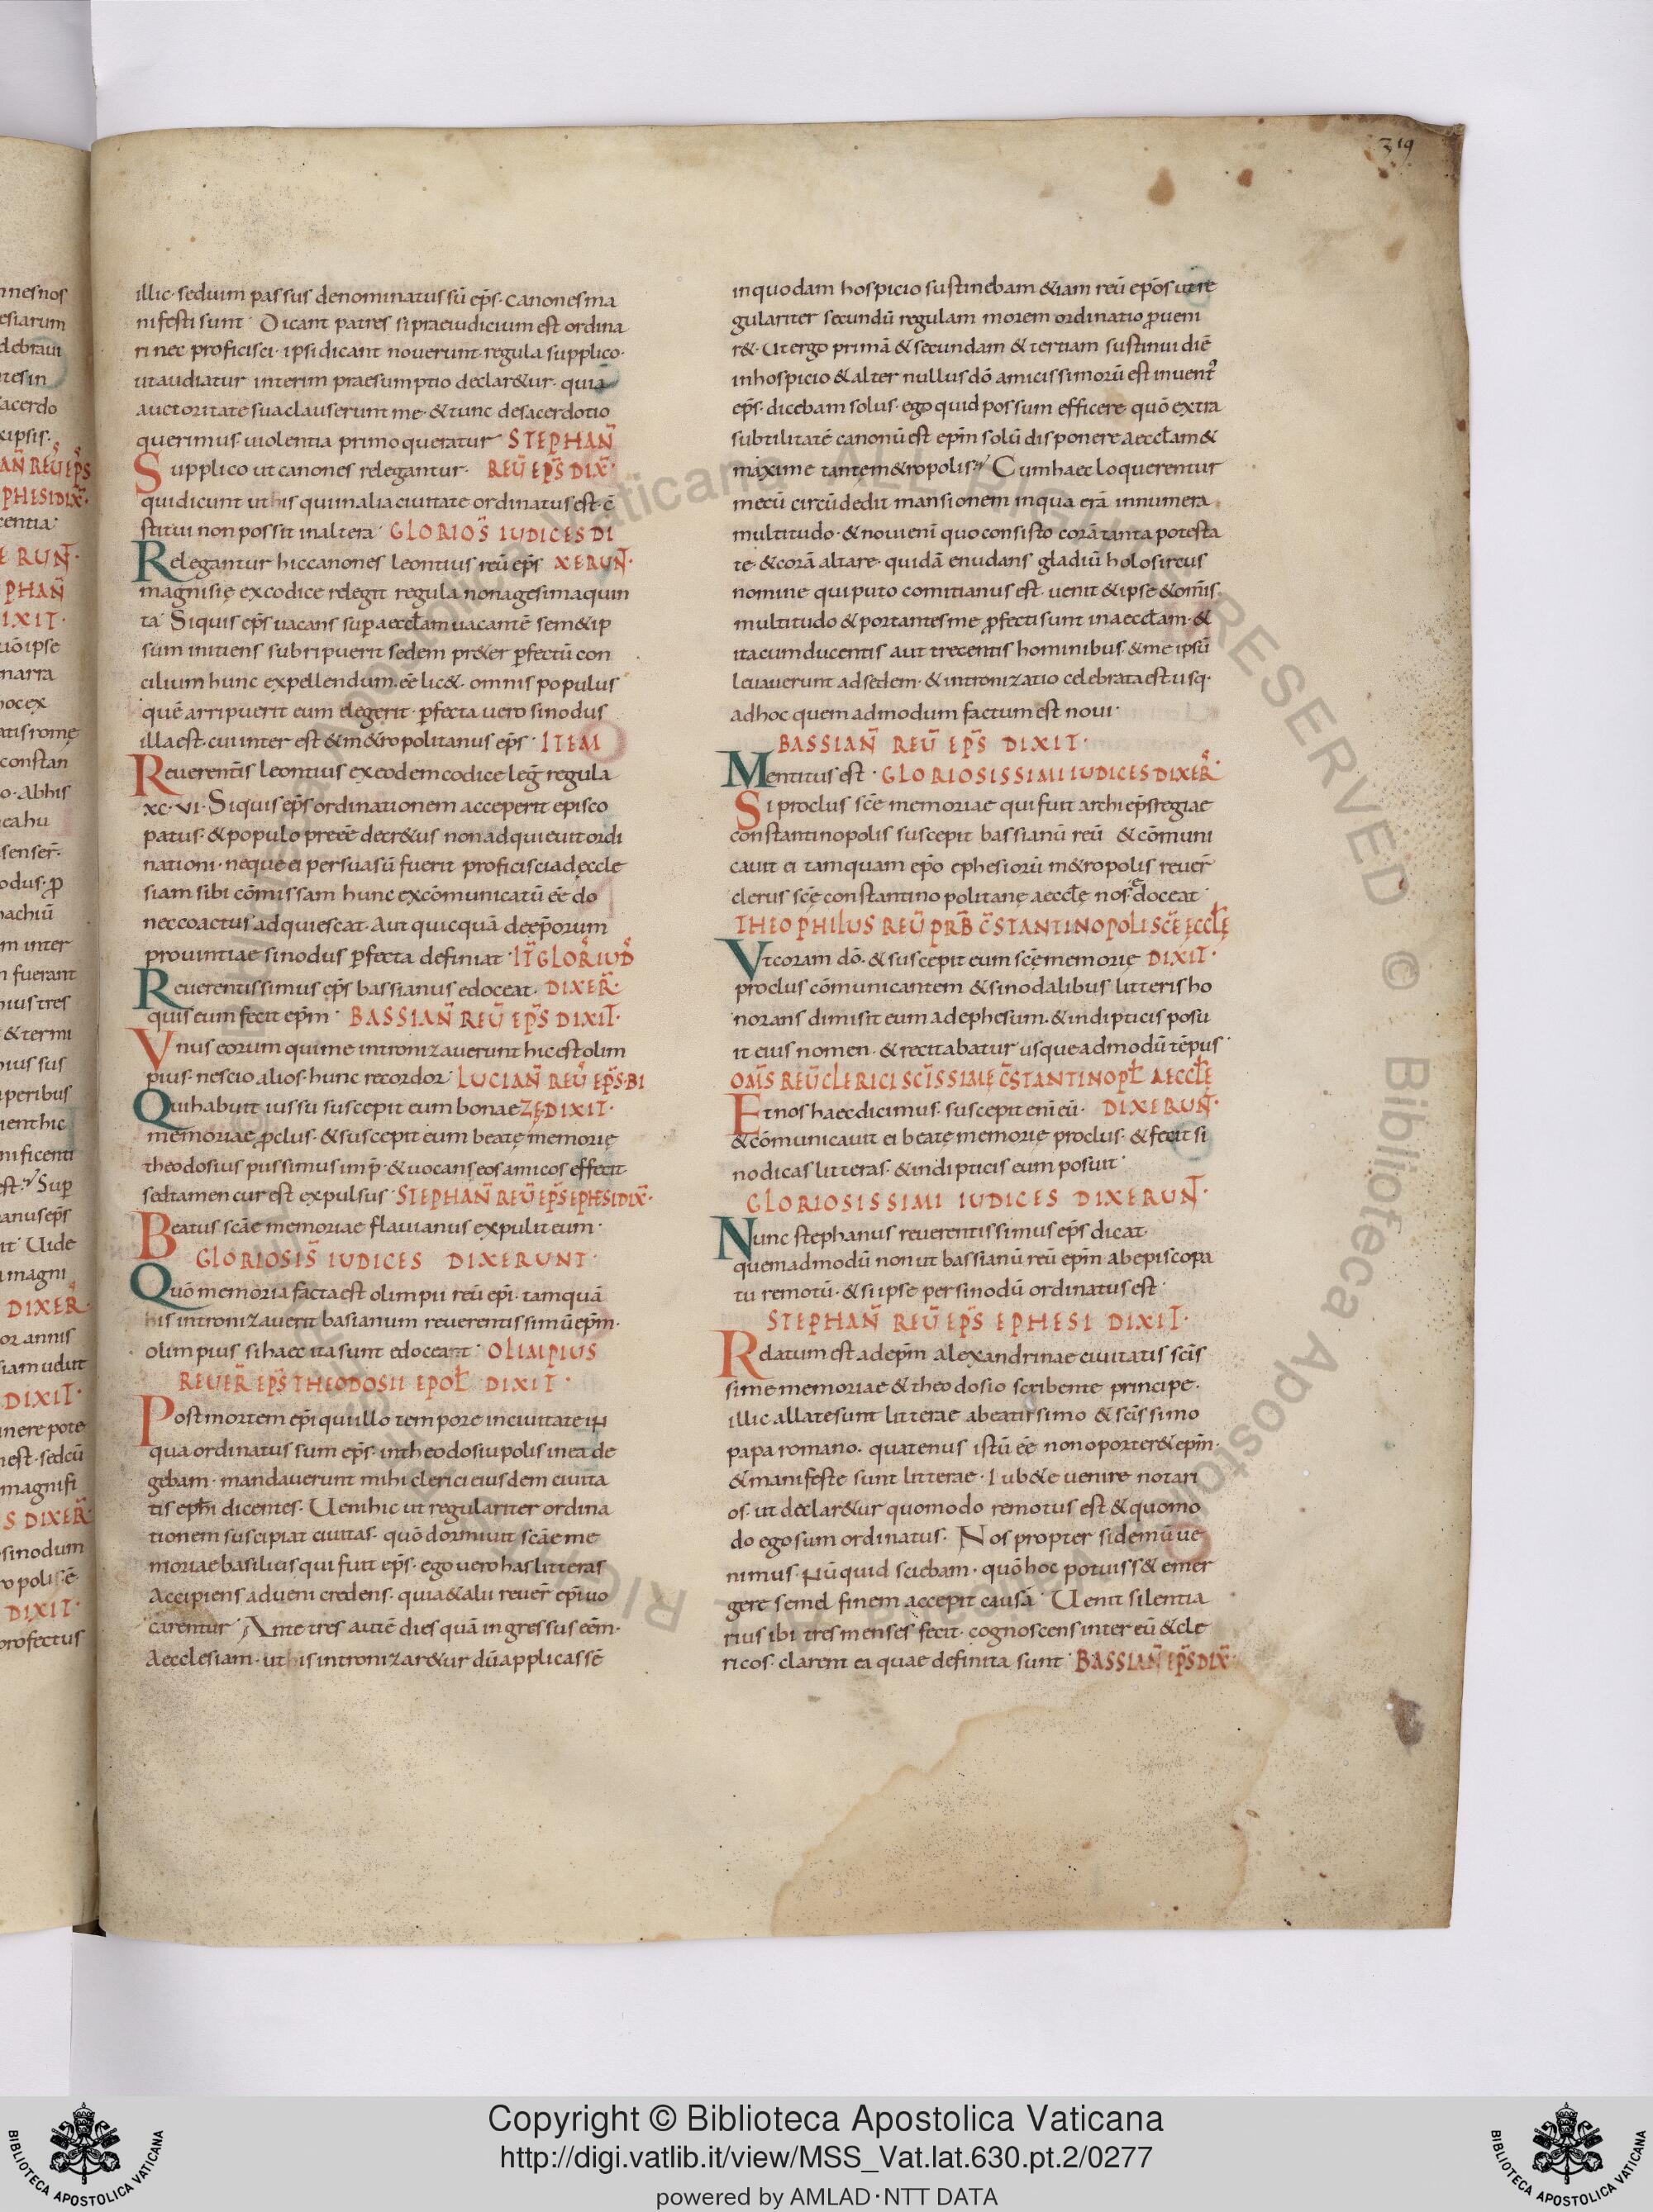 319
illic· sed uim passus denominatus sū ep̄s· canones ma
nifesti sunt· Dicant patres si praeiudicium est ordina
ri nec proficisci· ipsi dicant nouerunt· regula supplico·
ut audiatur interim praesumptio declar&ur· quia
auctoritate sua clauserunt me· & tunc de sacerdotio
querimus uiolentia primo queratur· STEPHAN̄
Supplico ut canones relegantur· REV̄ EP̄S DIX̄·
qui dicunt ut his qui in alia ciuitate ordinatus est· c̄
stitui non possit in altera· GLORIOS̄ IUDICES DI
Relegantur hic canones leontius reū ep̄s XERUNT̄·
magnisię ex codice relegit regula nonagesima quin
ta· Siquis ep̄s uacans sup aeccłam uacantē sem&ip
sum initiens subripuerit sedem pr&er ꝑfectū con
cilium hunc expellendum· eē lic&· omnis populus
quē arripuerit eum elegerit· ꝑfecta uero sinodus
illa est· cui inter est & m&ropolitanus ep̄s· ITEM
Reuerentis̄ leontius ex eodem codice leḡ regula
xc·vi· Siquis ep̄s ordinationem acceperit episco
patus· & populo preeē decr&us non adquieuit ordi
nationi· neque ei persuasū fuerit proficisci ad eccle
siam sibi cōmissam hunc excōmunicatū eē do
nec coactus adquiescat· Aut quicquā de ep̄orum
prouintiae sinodus ꝑfecta definiat· IT̄ GLOR̊ IUD̊
Reuerentissimus ep̄s bassianus edoceat· DIXER̄·
quis eum fecit ep̄m· BASSIAN̄ REV̄ EP̄S DIXIT̄·
Vnus eorum qui me intronizauerunt hic est olim
pius· nescio alios· hunc recordor· LUCIAN̄ REV̄ EP̄S· BI
Qui habuit iussu suscepit eum bonae ZĘ DIXIT̄·
memoriae ꝓclus· & suscepit eum beatę memorię
theodosius piissimus imp̄· & uocans eos amicos effecit·
sed tamen cur est expulsus· STEPHAN̄ REV̄ EP̄S EPHESI DIX̄·
Beatus scāe memoriae flauianus expulit eum·
GLORIOSIS̄ IUDICES DIXERUNT·
Quō memoria facta est olimpii reū ep̄i· tamquā
his intronizauerit basianum reuerentissimū ep̄m·
olimpius si haec ita sunt edoceat· OLIMPIUS
REVER̄ EP̄S THEODOSII EPOŁ DIXIT̄·
Post mortem ep̄i qui illo tempore in ciuitate in
qua ordinatus sum ep̄s· in theodosiupolis in ea de
gebam· mandauerunt mihi clerici eiusdem ciuita
tis ephi dicentes· Ueni hic ut regulariter ordina
tionem suscipiat ciuitas· quō dormiuit scāe me
moriae basilius qui fuit ep̄s· ego uero has litteras
Accipiens adueni credens· quia & alii reuer̄ ep̄i uo
carentur· Ante tres autē dies quā ingressus eēm·
Aecclesiam· ut his intronizar&ur dū applicassē
in quodam hospicio sustinebam & iam reū ep̄os ut re
gulariter secundū regulam morem ordinatio ꝓueni
r&· Ut ergo primā & secundam & tertiam sustinui diē
in hospicio & alter nullus dō amicissimorū est inuent᾽
ep̄s· dicebam solus· ego quid possum efficere quō extra
subtilitatē canonū est ep̄m solū disponere aeccłam &
maxime tantem &ropolis· Cum haec loquerentur
mecū circūdedit mansionem in qua erā innumera
multitudo· & noui enī quo consisto corā tanta potesta
te· & corā altare· quidā enudans gladiū holosireus
nomine qui puto comitianus est· uenit & ipse & om̄is·
multitudo & portantes me ꝓfecti sunt in aeccłam· &
ita cum ducentis aut trecentis hominibus· & me ipsū
leuauerunt ad sedem· & intronizatio celebrata est usq·
ad hoc quemadmodum factum est noui·
BASSIAN̄ REV̄ EP̄S DIXIT·
Mentitus est· GLORIOSISSIMI IUDICES DIXER̊·
Si proclus scē memoriae qui fuit archiep̄s regiae
constantinopolis suscepit bassianū reū & cōmuni
cauit ei tamquam ep̄o ephesiorū m&ropolis reuer̄
clerus scę constantinopolitanę aeccłę nos edoceat·
THEOPHILUS REV̄ PRB̄ C̄STANTINOPOLI SCĒ ĘCCŁĘ
Vt coram dō· & suscepit eum scę memorię DIXIT̄·
proclus cōmunicantem & sinodalibus litteris ho
norans dimisit eum ad ephesum· & in dipticis posu
it eius nomen· & recitabatur usque ad modū tēpus·
OM̄S REV̄ CLERICI SCĪSSIMĘ C̄STANTINOPŁ AECCŁĘ
Et nos haec dicimus· suscepit enī eū· DIXERUNT̄·
& cōmunicauit ei beatę memorię proclus· & fecit si
nodicas litteras· & in dipticis eum posuit·
GLORIOSISSIMI IUDICES DIXERUNT̄·
Nunc stephanus reuerentissimus ep̄s dicat·
quemadmodū non ut bassianū reū ep̄m ab episcopa
tu remotū· & si ipse per sinodū ordinatus est·
STEPHAN̄ REV̄ EP̄S EPHESI DIXIT̄·
Relatum est ad ep̄m alexandrinae ciuitatis scīs
sime memoriae & theodosio scribente principe·
illic allate sunt litterae a beatissimo & scīssimo
papa romano· quatenus istū eē non oporter& ep̄m·
& manifeste sunt litterae· Iub&e uenire notari
os· ut declar&ur quomodo remotus est & quomo
do ego sum ordinatus· Nos propter fidem ū ue
nimus· nūquid sciebam· quō hoc potuiss& emer
gere semel finem accepit causā· Uenit silentia
rius ibi tres menses fecit· cognoscens inter eū & cle
ricos· clarent ea quae definita sunt· BASSIAN̄ EP̄S DIX̄
Copyright © Biblioteca Apostolica Vaticana
http://digi.vatlib.it/view/MSS_Vat.lat.630.pt.2/0277
powered by AMLAD·NTT DATA
BIBLIOTECA APOSTOLICA VATICANA
BIBLIOTECA APOSTOLICA VATICANA